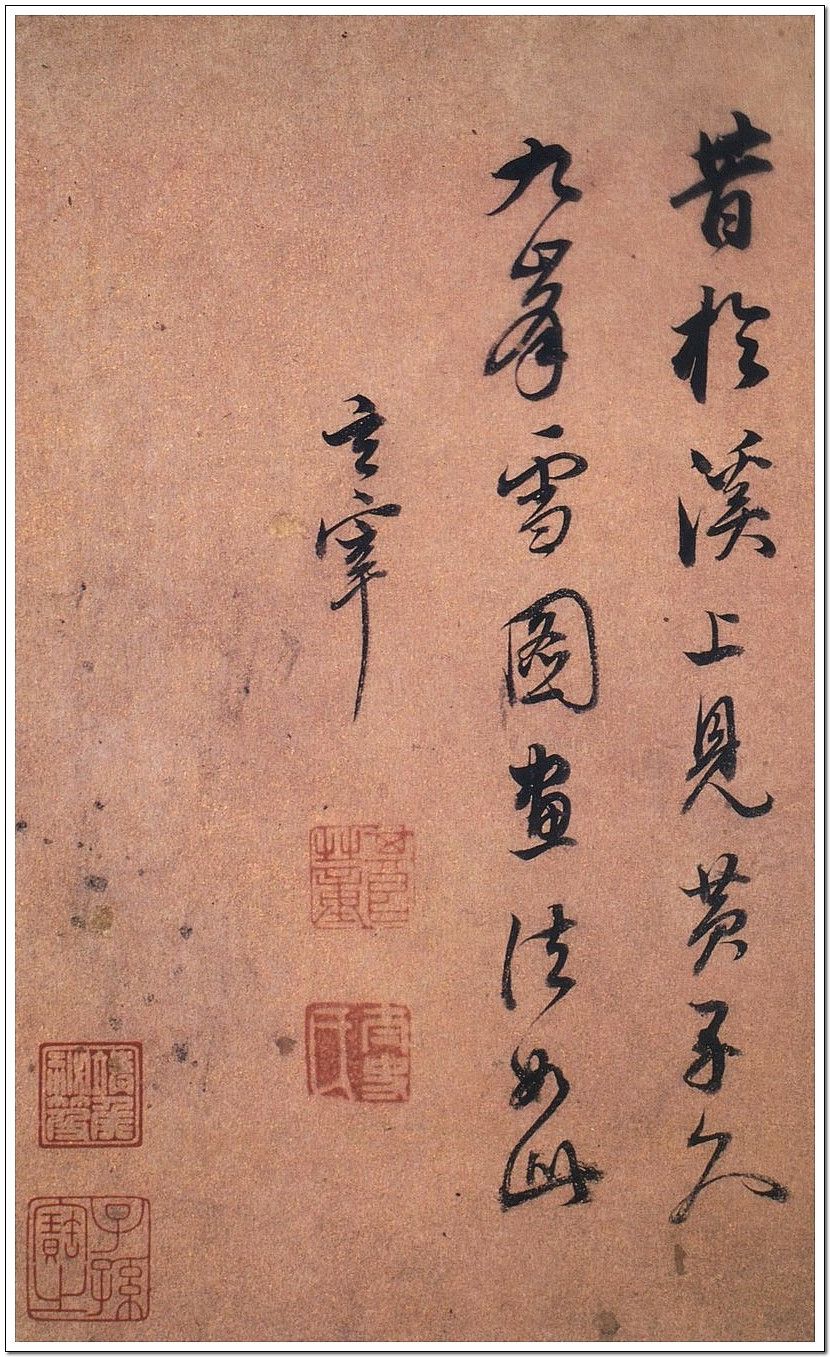 昔於溪上見黄子久
九峯雪圖畫法如此
玄宰
董其昌
子孫寶之